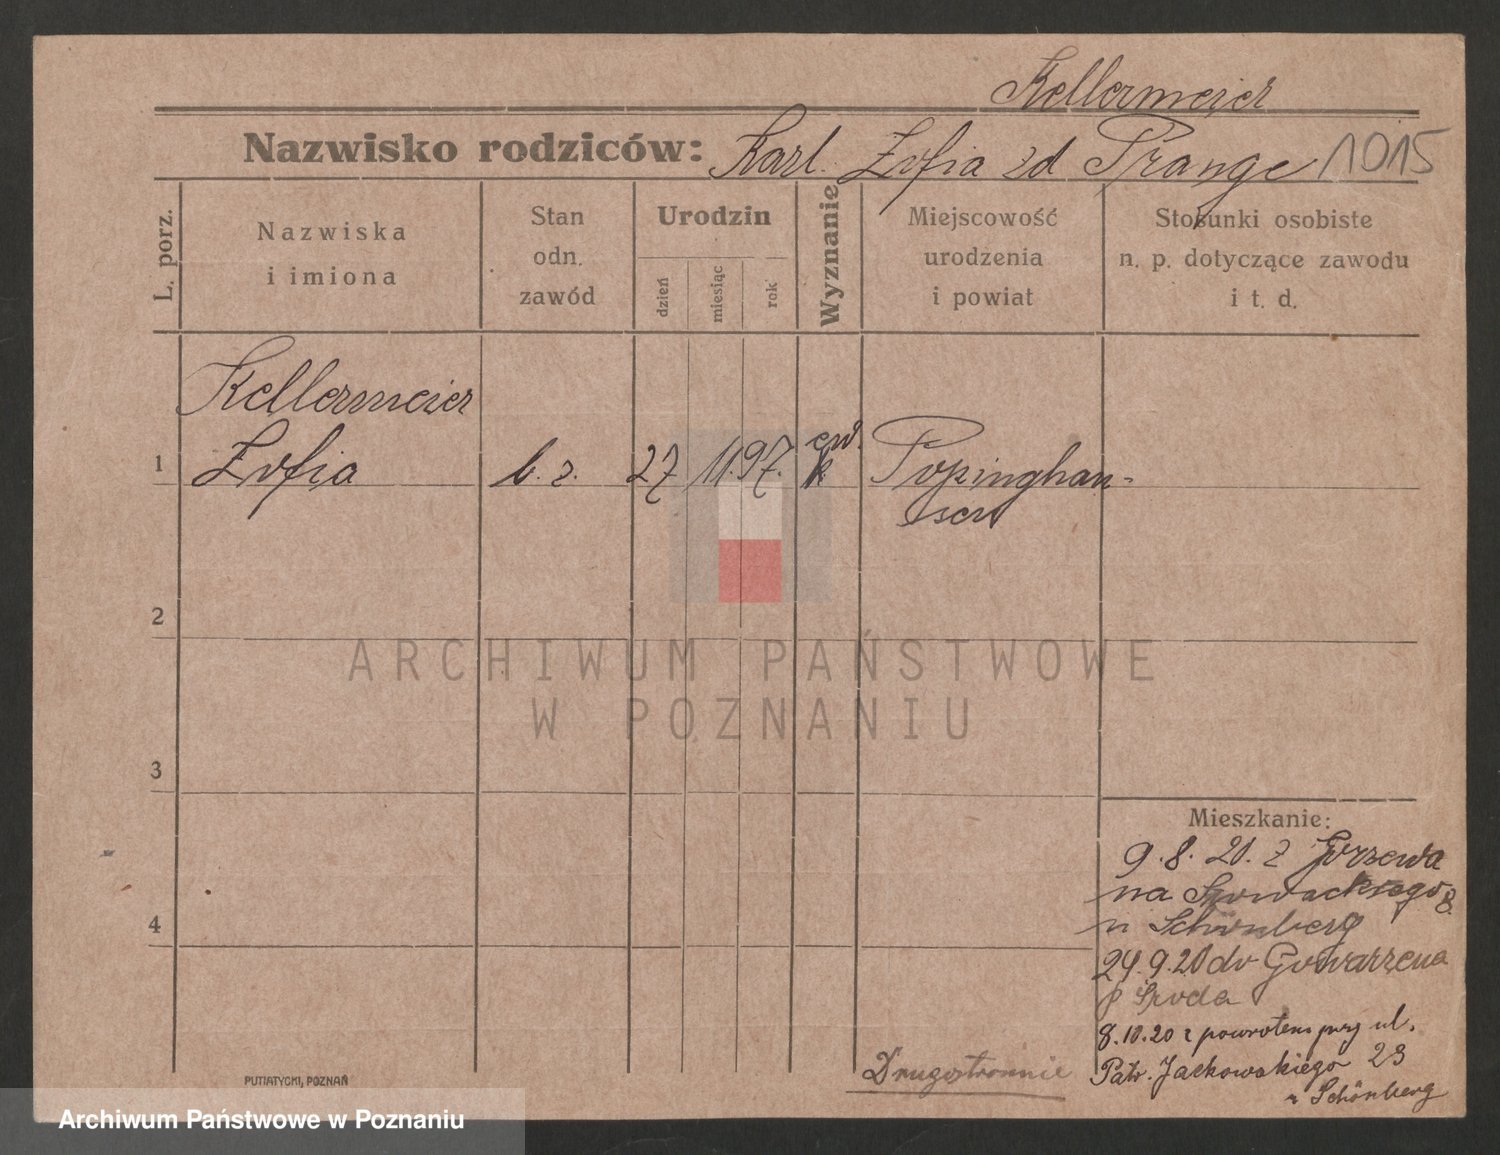 Kellermeier
Nazwisko rodziców: Karl. Zofia zd Prange 1015
L. porz.
Nazwiska
i imiona
Stan
odn.
zawód
Urodzin
dzień
miesiąc
rok
Wyznanie
Miejscowość
urodzenia
i powiat
Stosunki osobiste
n. p. dotyczące zawodu
i t. d.
Kellermeier
1 Zofia b. z. 27 11. 97. ew. Popinghau-
sen
2
3
4
Mieszkanie:
9. 8. 20. z
na 8.
u Schönberg
24. 9. 20 do Gowarzewa
p Środa
8.10.20 z powrotem przy ul.
Patr. Jackowskiego 23
u Schönberg
Drugostronnie
PUTIATYCKI, POZNAŃ
ARCHIWUM PAŃSTWOWE
W POZNANIU
Archiwum Państwowe w Poznaniu